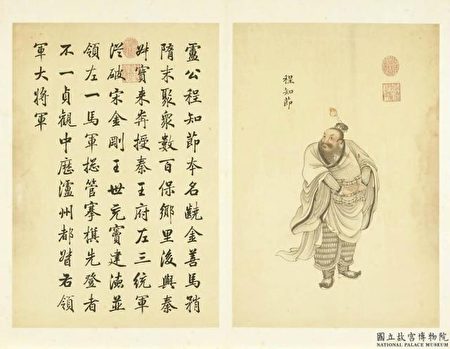 程知節
盧公程知節本名齩金善馬矟
隋末聚眾數百保鄉里後與秦
叔寶來奔授秦王府左三統軍
從破宋金剛王世充竇建德並
領左一馬軍總管搴旗先登者
不一貞觀中歷瀘州都督右領
軍大將軍
國立故宮博物院
NATIONAL PALACE MUSEUM